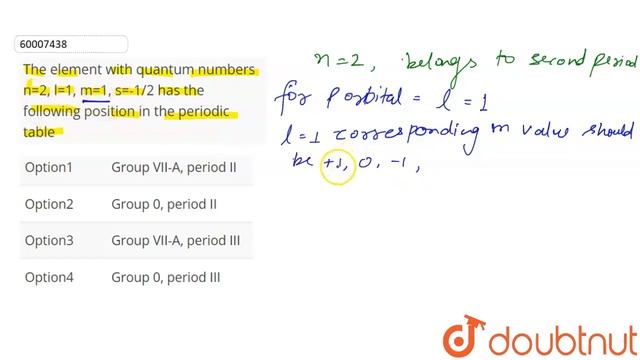 60007438
The element with quantum numbers
n=2, l=1, m=1, s=-1/2 has the
following position in the periodic
table
Option1 Group VII-A, period II
Option2 Group 0, period II
Option3 Group VII-A, period III
Option4 Group 0, period III
n=2, belongs to second period
for P orbital = l = 1
l=1 corresponding m value should
be +1, 0, -1,
doubtnut